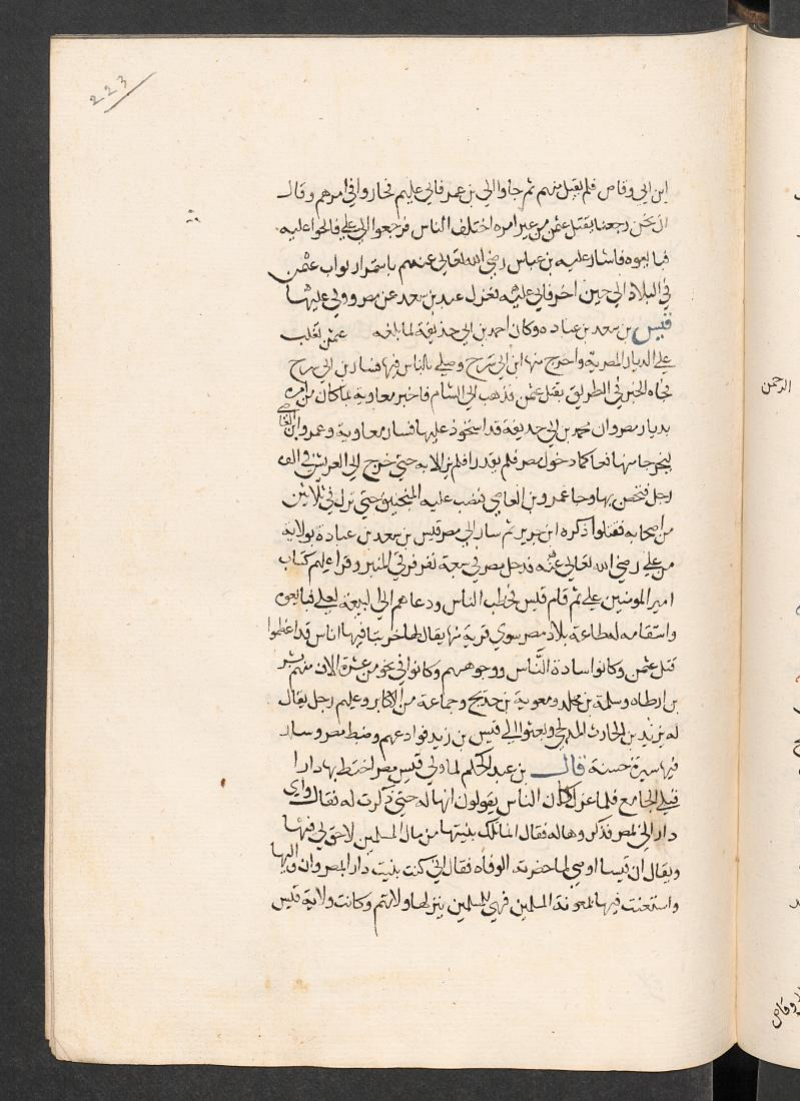 223
ابن ابي وقاص فلم يقبل منهم ثم جاوا الي بن عمر فابي عليهم فحاروا في امرهم وقال
ان نحن رجعنا بقتل عثمن من غير امره اختلف الناس فرجعوا الي علي فالحوا عليه
فبايعوه فاشار عليه بن عباس رضي الله تعالي عنهم باستمرار نواب عثمن
في البلاد الي حين اخر فابي عليه فعزل عبد بن سعد عن مصر وولي عليها
قيس بن سعد بن عباده وكان احمد بن ابي حذيفة لما بلغه عثمن تغلب
علي الديار المصرية واخرج منها ابن ابي سرح وصلي بالناس فيها فسار بن ابي سرح
فجاه الخبر في الطريق بقتل عثمن فذهب الي الشام فاخبر معاوية بما كان من امره
بديار مصر وان محمد بن ابي حذيفة قد استحوذ عليها فسار معاوية وعمرو ابن العاصي
ليخرجا منها فعالجا دخول مصر فلم يقدرا فلم يزالا به حتي خرج الي العريش في الف
رجل فتحصن بها وجا عمرو بن العاصي فنصب عليه المنجنيق حتي نزل في ثلاثين
من اصحابه فقتلوا ذكره ابن جرير ثم سار الي مصر قيس بن سعد بن عبادة بولاية
من علي رضي الله تعالي عنه فدخل مصر في سبعة نفر فرقي المنبر وقرا عليهم كتاب
امير المومنين علي ثم قام قيس فخطب الناس ودعاهم الي البيعة لعلي فبايعوه
واستقامه له طاعة بلاد مصر سوي قرية منها يقال لها خربتا فيها اناس قد اعظموا
قتل عثمن وكانوا سادة الناس ووجوههم وكانوا في نحو من عشرة الاف منهم بشر
بن ارطاه وسلمة بن مخلد ومعوية بن خديج وجماعة من الاكابر وعليهم رجل يقال
له يزيد بن الحارث المدلجي وبعثوا الي قيس بن زيد فوادعهم وضبط مصر وسار
فيها سيرة حسنة قال بن عبد الحكم لما ولي قيس مصر اختط بها دارا
قبلي الجامع فلما عزل كان الناس يقولون انها له حتي ذكرت له فقال واي
دار لي بمصر فذكروها له فقال انما تلك بنيتها من مال المسلمين لا حق لي فيها
ويقال ان قيسا اوصي لما حضرته الوفاه فقال اني كنت بنيت دار المصر وان واليها
واستعنت فيها بمعونة المسلمين فهي للمسلمين ينزلها ولاتهم وكانت ولاية قيس
الرحمن